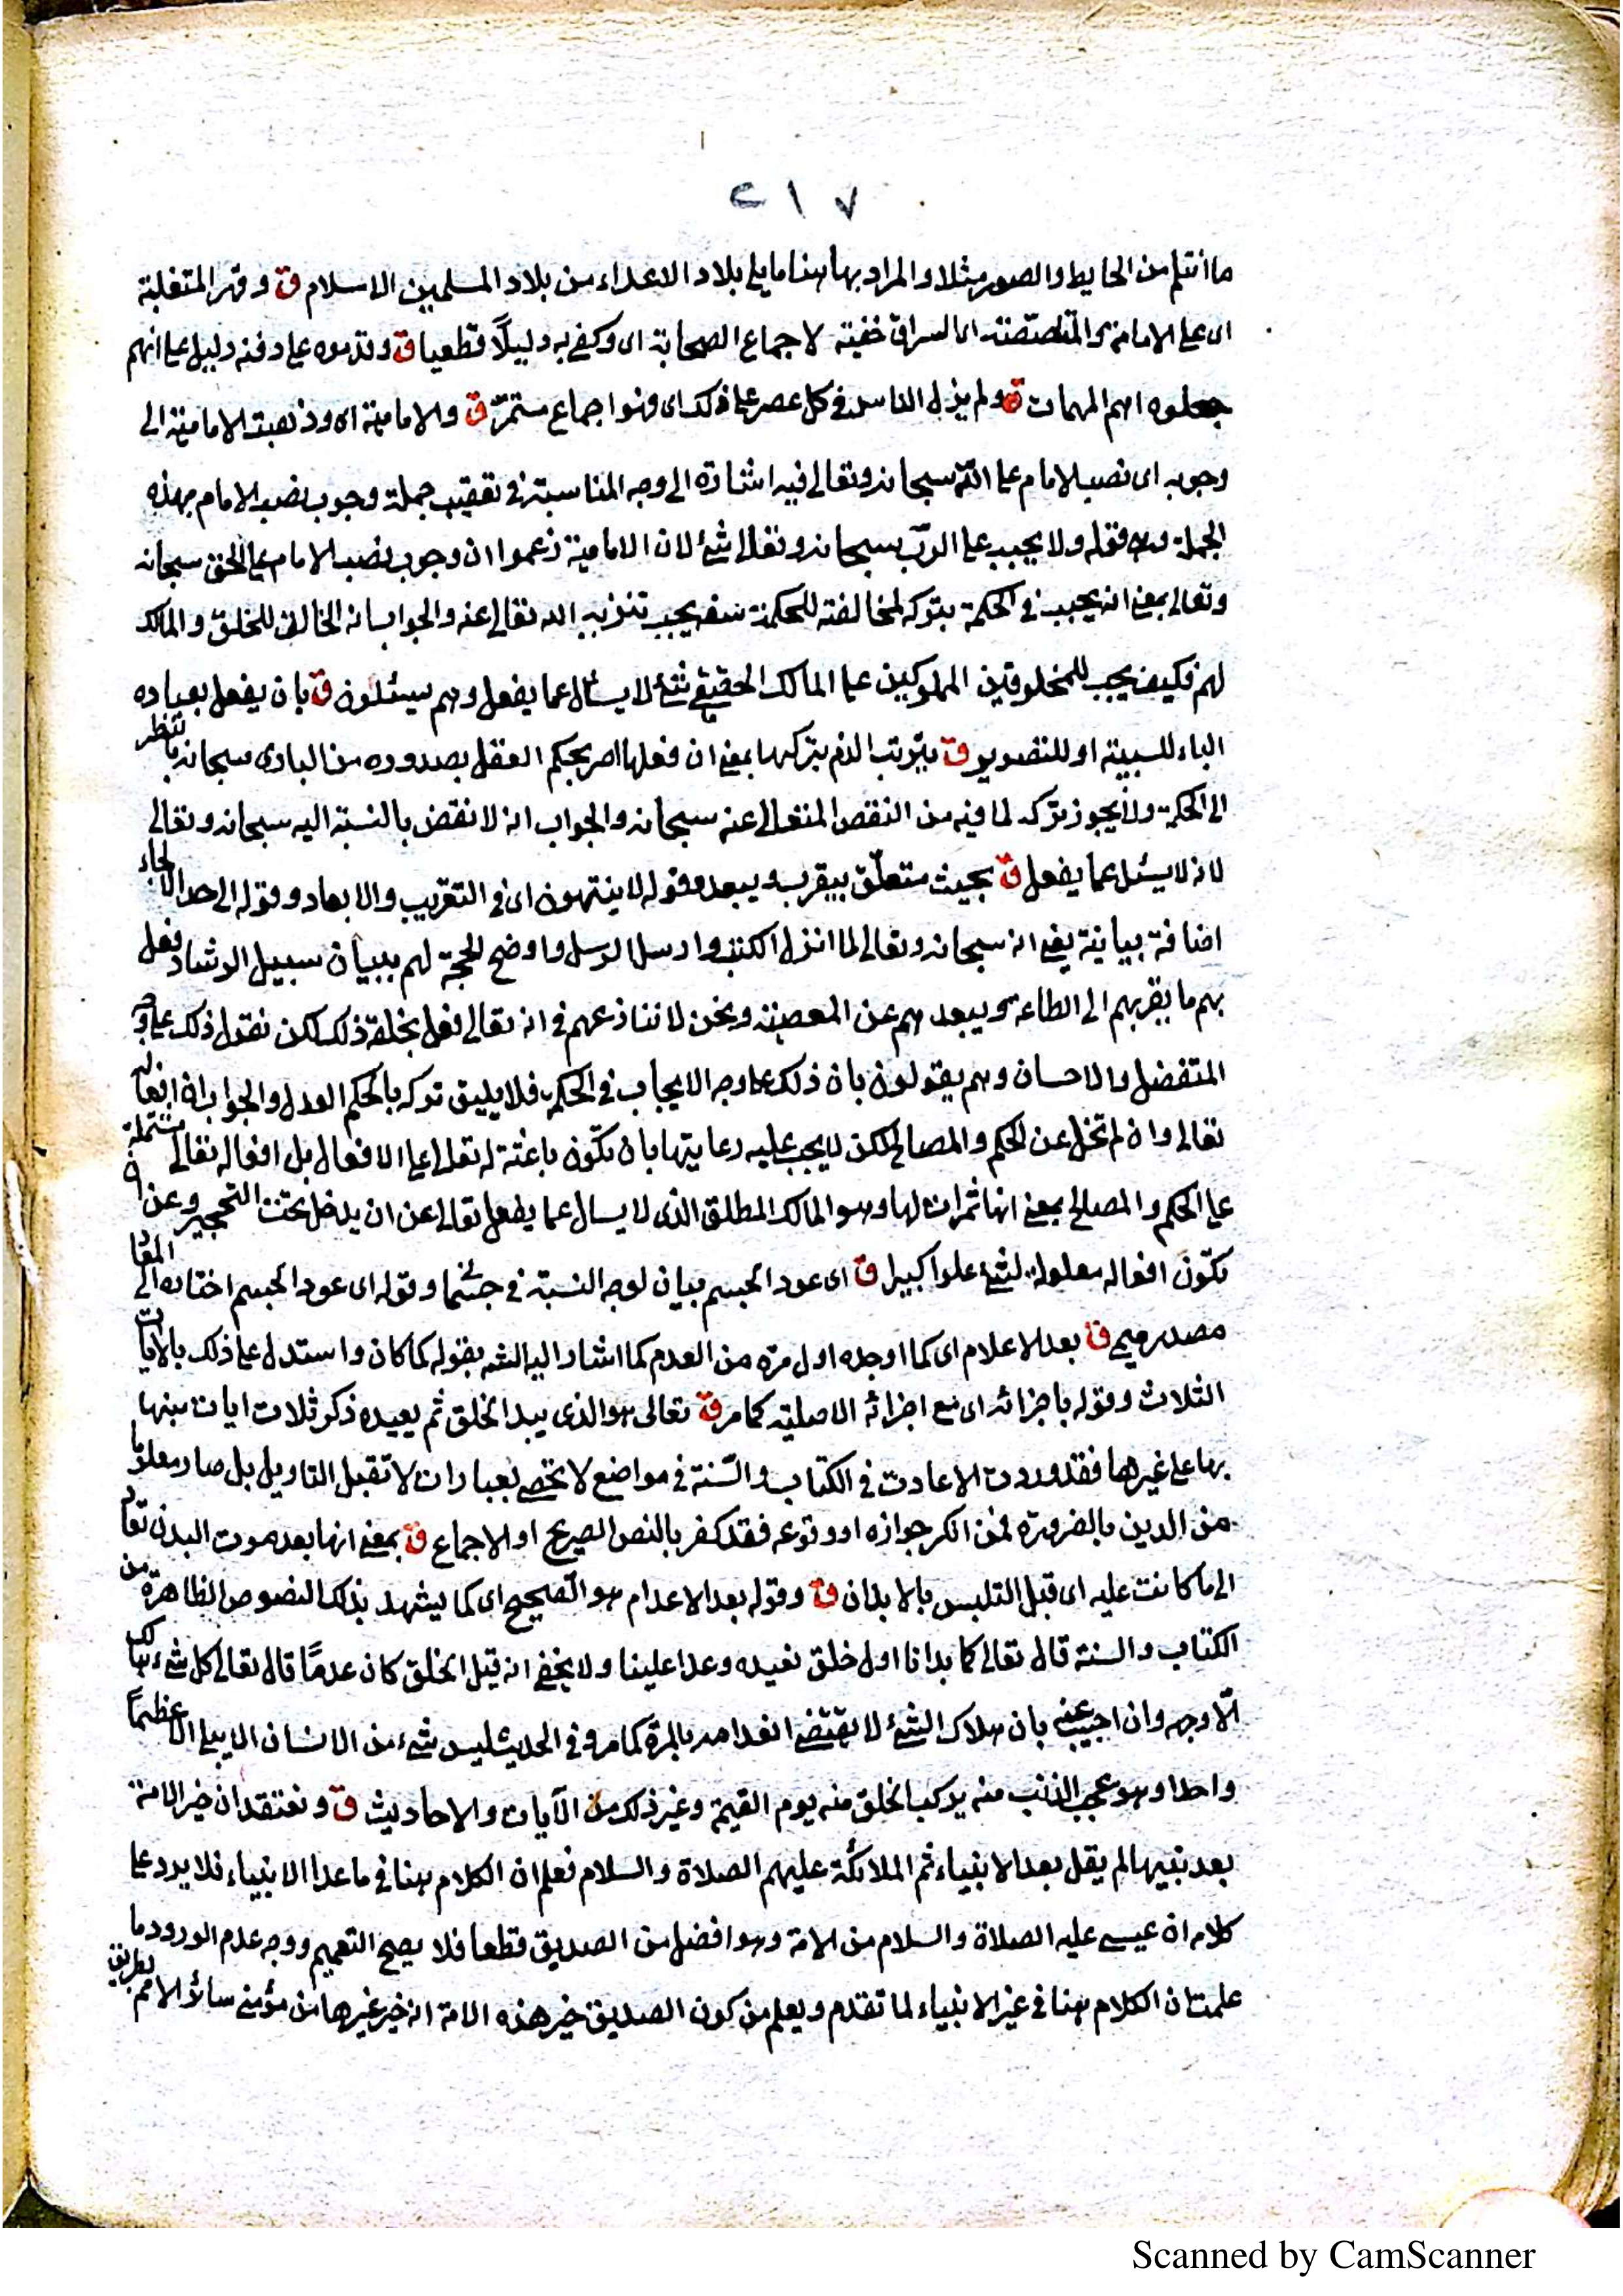 ٢١٧
ما أنثلم من الحايط والصور مثلا والمراد بها هنا ما يلي بلاد الاعداء من بلاد المسلمين الاسلام ق وقهر المتغلبة
اى على الامامة والمتلصصة اى السراق خفية لاجماع الصحابة اى وكفى به دليلًا قطعيا ق وقدموه على دفنه دليل على انهم
جعلوه اهم المهمات ق ولم يزل الناس في كل عصر على ذلك اى وهو اجماع مستمرّ ق والامامية اى وذهبت الامامية الى
وجوبه اى نصب الامام على الله سبحانه وتعالى فيه اشارة الى وجه المناسبة في تعقيب جملة وجوب نصب الامام بهذه
الجملة وهو قوله ولا يجب على الربّ سبحانه وتعالى شئ لان الامامية زعموا ان وجوب نصب الامام على الحق سبحانه
وتعالى بمعنى انه يجب في الحكمة بتركه لمخالفته للحكمة سفه يجب تنزيه الله تعالى عنه والجواب انه الخالق للخلق والمالك
لهم فكيف يجب للمخلوقين المملوكين على المالك الحقيقي شئ لا يسأل عما يفعل وهم يسئلون ق بان يفعل بعباده
الباء للسببية او للتصوير ق يترتب الذم بتركها بمعنى ان فعلها امر يحكم العقل بصدوره من البارى سبحانه بالنظر
الى الحكمة ولا يجوز تركه لما فيه من النقص المتعالى عنه سبحانه والجواب انه لا نقض بالنسبة اليه سبحانه وتعالى
لانه لا يسئل عما يفعل ق بحيث متعلّق بيقرب ويبعد وقوله لا ينتهون اى في التقريب والابعاد وقوله الى حد الالجاء
اضافة بيانية يعني انه سبحانه وتعالى لما انزل الكتب وارسل الرسل واوضح الحجة لهم ببيان سبيل الرشاد فعل
بهم ما يقربهم الى الطاعة ويبعدهم عن المعصية ونحن لا ننازعهم في انه تعالى فعل بخلقه ذلك لكن نقول ذلك على وجه
المتفضل والاحسان وهم يقولون بان ذلك على وجه الايجاب في الحكم فلا يليق تركه بالحكم العدل والجواب ان افعاله
تعالى وان لم تخل عن الحكم والمصالح لكن لا يجب عليه رعايتها بان تكون باعثة له تعالى على الافعال بل افعاله تعالى مشتملة
على الحكم والمصالح بمعنى انها ثمرات لها وهو المالك المطلق الذى لا يسال عما يفعل تعالى عن ان يدخل تحت التحجير وعن ان
تكون افعاله معلولة لشئ علوا كبيرا ق اى عود الجسم بيان لوجه النسبة في جسما وقوله اى عود الجسم اضافه الى المعاد
مصدر ميمي ق بعد الاعلام اى كما اوجده اول مرة من العدم كما اشار اليه الشه بقوله كما كان واستدل على ذلك بالايات
الثلاث وقوله باجزائه اى مع اجزائه الاصلية كما مر ق تعالى هو الذى يبدا الخلق ثم يعيده ذكر ثلاث ايات منبها
بها على غيرها فقد وردت الاعادت في الكتاب والسّنة في مواضع لا تحصى بعبارات لا تقبل التاويل بل صار معلوما
من الدين بالضرورة فمن انكر جوازه او وقوعه فقد كفر بالنص الصريح او الاجماع ق بمعنى انها بعد موت البدن تعاد
الى ما كانت عليه اى قبل التلبس بالابدان ق وقوله بعد الاعدام هو الصحيح اى كما يشهد بذلك النصوص الظاهرة من
الكتاب والسنة قال تعالى كما بدانا اول خلق نعيده وعدا علينا ولا يخفى انه قبل الخلق كان عدمًا قال تعالى كل شئ هالك
الّا وجهه وان اجيب عنه بان هلاك الشئ لا يقتضي انعدامه بالمرة كما مر وفي الحديث ليس شئ من الانسان الا يبلى الا عظمًا
واحدا وهو عجب الذنب منه يركب الخلق منه يوم القيمة وغير ذلك من الآيات والاحاديث ق ونعتقد ان خير الامة
بعد نبيها لم يقل بعد الانبياء ثم الملائكة عليهم الصلاة والسلام فعلم ان الكلام هنا في ما عدا الانبياء فلا يرد على
كلامه ان عيسى عليه الصلاة والسلام من الامة وهو افضل من الصديق قطعا فلا يصح التعميم ووجه عدم الورود ما
علمت ان الكلام هنا في غير الانبياء لما تقدم ويعلم من كون الصديق خير هذه الامة انه خير غيرها من مؤمنى سائر الامم بطريق
Scanned by CamScanner